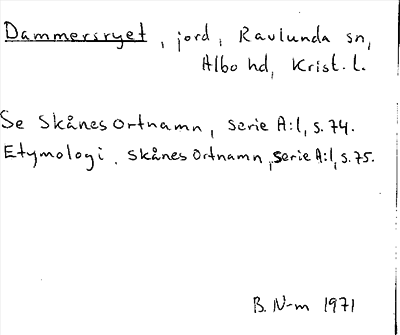 Dammersryet, jord, Ravlunda sn,
Albo hd, Krist. l.
Se Skånes Ortnamn, serie A:1, s. 74.
Etymologi. Skånes Ortnamn, serie A:1, s. 75.
B. N-m 1971